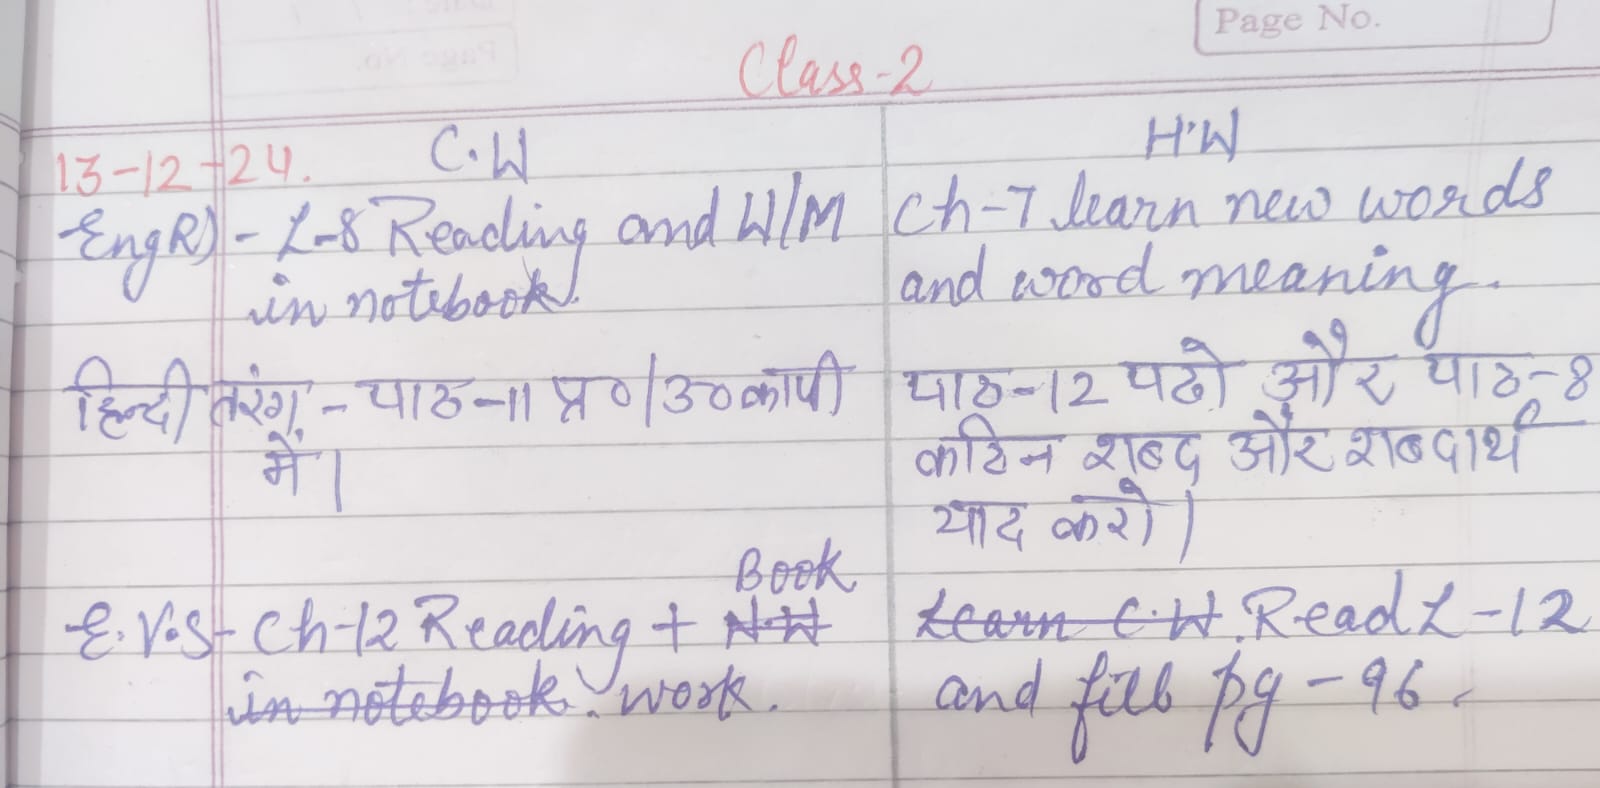 Page No.
Class-2
13-12-24. C.W
EngR) - L-8 Reading and W/M
in notebook.
हिन्दी तरंग - पाठ-11 प्र०/उ० कापी
में।
E.V.S - Ch-12 Reading + N.W Book
in notebook. work.
H.W
Ch-7 learn new words
and word meaning.
पाठ-12 पढो और पाठ-8
कठिन शब्द और शब्दार्थ
याद करो।
Learn C.W. Read L-12
and fill pg-96.